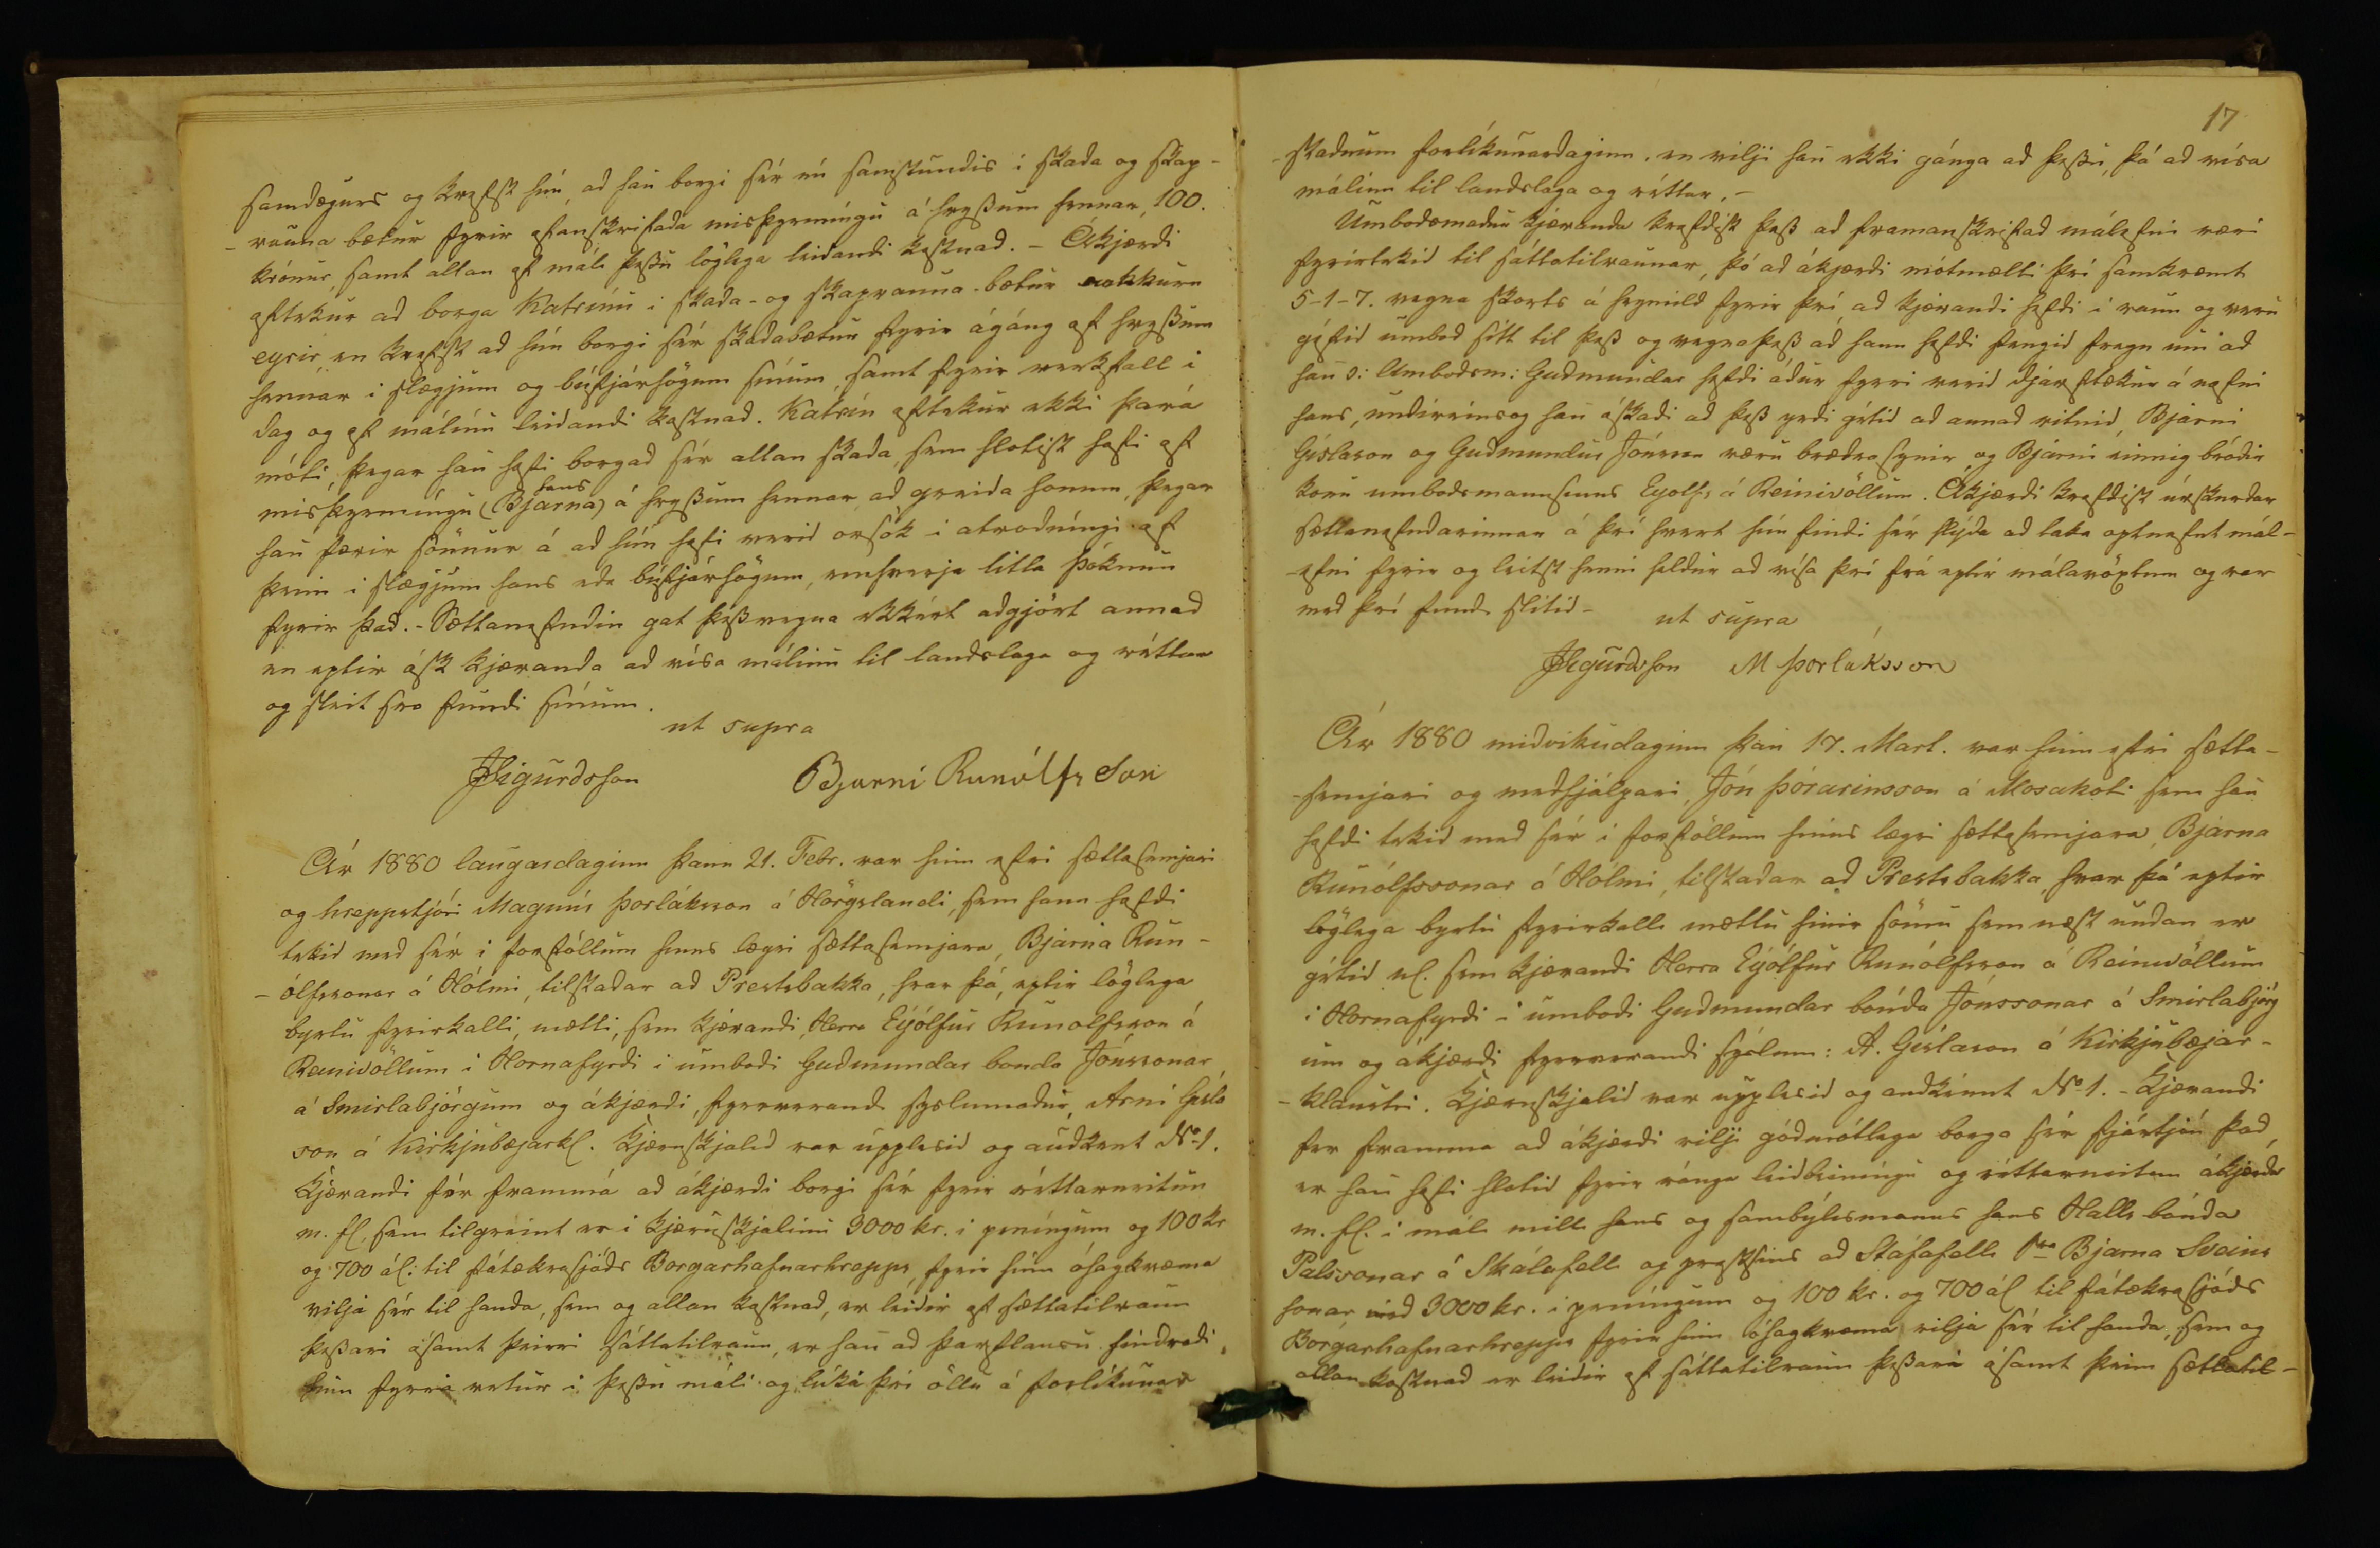 samdægurs og krefst hún, ad han borgi sér nú samstundis í skada og skap-
- rauna bætur fyrir ofanskrifada misþyrmíngu á hrossum hennar, 100.
krónur, samt allan af máli þessu löglega leidandi kostnad. – Ákjærdi
aftekur ad borga Katrínu í skada- og skaprauna-bætur nokkurn
eyrir, en krefst ad hún borgi sér skadabætur fyrir ágáng af hrossum
hennar í slægjum og búfjárhögum sínum, samt fyrir verkfall í
dag og af málinu leidandi kostnad. Katrín aftekur ekki þará
móti, þegar han hafi borgad sér allan skada, sem hlotist hafi af
misþyrmíngu (Bjarna) hans á hrossum hennar, ad greida honum, þegar
han færir sönnur á ad hún hafi verid orsök í átrodníngi af
þeim í slægjum hans eda búfjárhögum, einhverja litla þóknun
fyrir það. – Sættanefndin gat þessvegna ekkert adgjört annad
en eptir ósk kjæranda ad vísa málinu til landslaga og réttar
og sleit svo fundi sínum.
ut supra
JSigurdsson Bjarni Runólfsson
Ár 1880 laugardaginn þann 21. Febr. var hinn efri sættasemjari
og hreppstjóri Magnús Þorláksson á Hörgslandi, sem hann hafdi
tekid med sér í forföllum hins lægri sættasemjara, Bjarna Run-
- ólfssonar á Hólmi, tilstadar ad Prestsbakka, hvar þá, eptir löglega
byrtu fyrirkalli, mætti, sem kjærandi, Herra Eyólfur Runolfsson á
Reinivöllum í Hornafyrdi í umbodi Gudmundar bonda Jónssonar
á Smirlabjörgum og ákjærdi, fyrverandi syslumadur, Arni Gísla
son á Kirkjubæjarkl. Kjæruskjalid var upplesid og audkent No 1.
Kjærandi fór frammá ad ákjærdi borgi sér fyrir réttarneitun
m. fl., sem tilgreint er í kjæruskjalinu 3000 kr. í peníngum og 100 kr
og 700 ál: til fátækrasjóds Borgarhafnarhrepps, fyrir hinn óhagkvæma
vilja sér til handa, sem og allan kostnad, er leidir af sættatilraun
þessari ásamt þeirri sáttatilraun, er han ad þarflausu hindradi
hinn fyrra vetur í þessu máli og lúka því öllu á forlíkunar
17
- stadnum forlíkunardaginn, en vilji han ekki gánga ad þessu, þá ad vísa
málinu til landslaga og réttar. –
Umbodsmadur kjæranda krafdist þess ad framanskrifad málefni væri
fyrirtekid til sáttatilraunar, þó ad ákjærdi mótmælti því samkvæmt
5-1-7. vegna skorts á heymild fyrir því, ad kjærandi hefdi í raun og veru
géfid umbod sitt til þess og vegna þess ad hann hefdi fengid fregn um ad
han o: Umbodsm: Gudmundar hefdi ádur fyrri verid djarftækur á nafni
hans, undireinsog han óskadi ad þess yrdi gétid ad annad vitnid, Bjarni
Gíslason og Gudmundur Jónsson væru brædrasynir, og Bjarni einnig bródir
konu umbodsmannsins Eyolfs á Reinivöllum. Ákjærdi krafdist úrskurdar
sættanefndarinnar á því hvert hún findi sér skylda ad taka optnefnt mál-
- efni fyrir og leitst henni heldur ad vísa því frá eptir málavöxtum og var
med því fundi slitid –
ut supra
JSigurdsson M Þorláksson
Ár 1880 midvikudaginn þan 17. Mart. var hinn efri sætta-
- semjari og medhjálpari, Jón Þórarinsson á Mosakoti, sem han
hafdi tekid med sér í forföllum hins lægri sættasemjara, Bjarna
Runólfssonar á Hólmi, tilstadar ad Prestsbakka, hvar þá eptir
löglega byrtu fyrirkalli mættu hinir sömu sem næst undan er
gétid nl. sem kjærandi Herra Eyólfur Runólfsson á Reinivöllum
í Hornafyrdi – í umbodi Gudmundar bónda Jónssonar á Smirlabjörg
um og ákjærdi, fyrrverandi sýslum: A. Gíslason á Kirkjubæjar-
- klaustri. Kjæruskjalid var upplesid og audkénnt No 1. – Kjærandi
fer framma ad ákjærdi vilji gódmótlega borga sér fjártjón það
er han hafi hlotid fyrir ránga leidbeiníngu og réttarneitun ákjærda
m. fl. í máli milli hans og sambýlismanns hans Halls bónda
Palssonar á Skálafelli og prestsins ad Stafafelli Sra Bjarna Sveins
sonar, med 3000 kr. í peníngum og 100 kr. og 700 ál til fátækrasjóds
Borgarhafnarhrepps fyrir hinn óhagkvæma vilja sér til handa, sem og
allan kostnad er leidir af sáttatilraun þessari ásamt þeim sættatil-